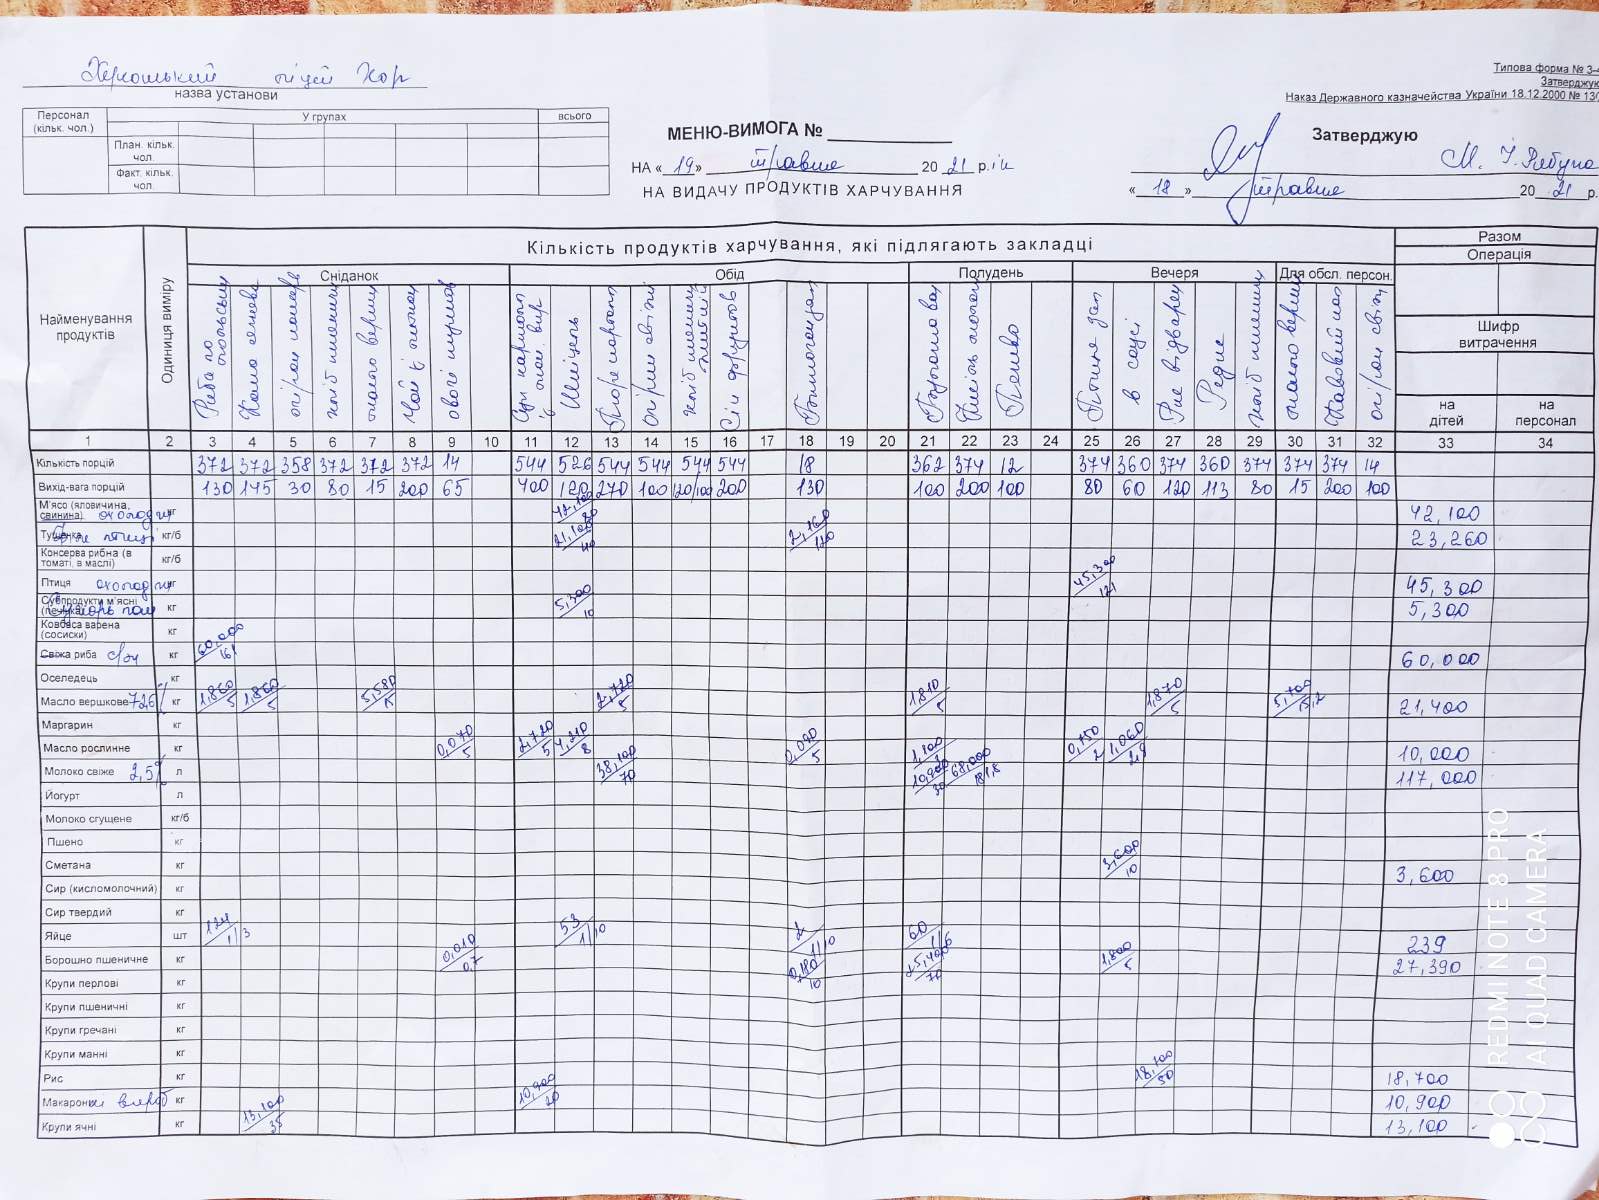 Типова форма № 3-
Затверджую
Наказ Державного казначейства України 18.12.2000 № 13
ліцей
назва установи
Персонал (кільк. чол.) У групах всього
План. кільк. чол.
Факт. кільк. чол.
МЕНЮ-ВИМОГА №
НА « 19 » травня 20 21 р.
НА ВИДАЧУ ПРОДУКТІВ ХАРЧУВАННЯ
Затверджую
« 18 » травня 20 21 р.
Найменування продуктів Одиниця виміру Кількість продуктів харчування, які підлягають закладці Разом
Операція
Сніданок Обід Полудень Вечеря Для обсл. персон.
Шифр витрачення
на дітей на персонал
Риба по польському
Каша
хліб пшеничн
масло верш
Шніцель
Пюре картоп
Огірки свіжі
хліб пшеничн
Сік фруктов
Кисіль молочн
Печиво
Птиця зап
в соусі
Рис відварен
хліб пшеничн
масло вершк
огірки свіж
1 2 3 4 5 6 7 8 9 10 11 12 13 14 15 16 17 18 19 20 21 22 23 24 25 26 27 28 29 30 31 32 33 34
Кількість порцій 372 372 358 372 372 372 14 544 526 544 544 544 544 18 362 374 12 374 360 374 360 374 374 374 14
Вихід-вага порцій 130 145 30 80 15 200 65 400 120 270 100 120/100 200 130 100 200 100 80 60 120 113 80 15 200 100
М'ясо (яловичина, свинина) охолодж кг 42,100/80 42,100
Тушенка кг/б 21,100/40 2,160/120 23,260
Консерва рибна (в томаті, в маслі) кг/б
Птиця охолодж кг 45,300/121 45,300
Субпродукти м'ясні кг 5,300/10 5,300
Ковбаса варена (сосиски) кг
Свіжа риба с/м кг 60,000/161 60,000
Оселедець кг
Масло вершкове 72,6% кг 1,860/5 1,860/5 5,580/15 2,720/5 1,810/5 1,870/5 5,700/15,2 21,400
Маргарин кг
Масло рослинне кг 0,070/5 2,720/5 4,210/8 0,090/5 1,100/3 0,750/2 1,060/2,9 10,000
Молоко свіже 2,5% л 38,100/70 10,900/30 68,000/181,8 117,000
Йогурт л
Молоко сгущене кг/б
Пшено кг
Сметана кг 3,600/10 3,600
Сир (кисломолочний) кг
Сир твердий кг
Яйце шт 124 1/3 53 1/10 2 1/10 60 1/6 239
Борошно пшеничне кг 0,010/0,7 0,180/10 25,400/70 1,800/5 27,390
Крупи перлові кг
Крупи пшеничні кг
Крупи гречані кг
Крупи манні кг
Рис кг 18,700/50 18,700
Макарони вироб кг 10,900/20 10,900
Крупи ячні кг 13,100/35 13,100
REDMI NOTE 8 PRO
AI QUAD CAMERA